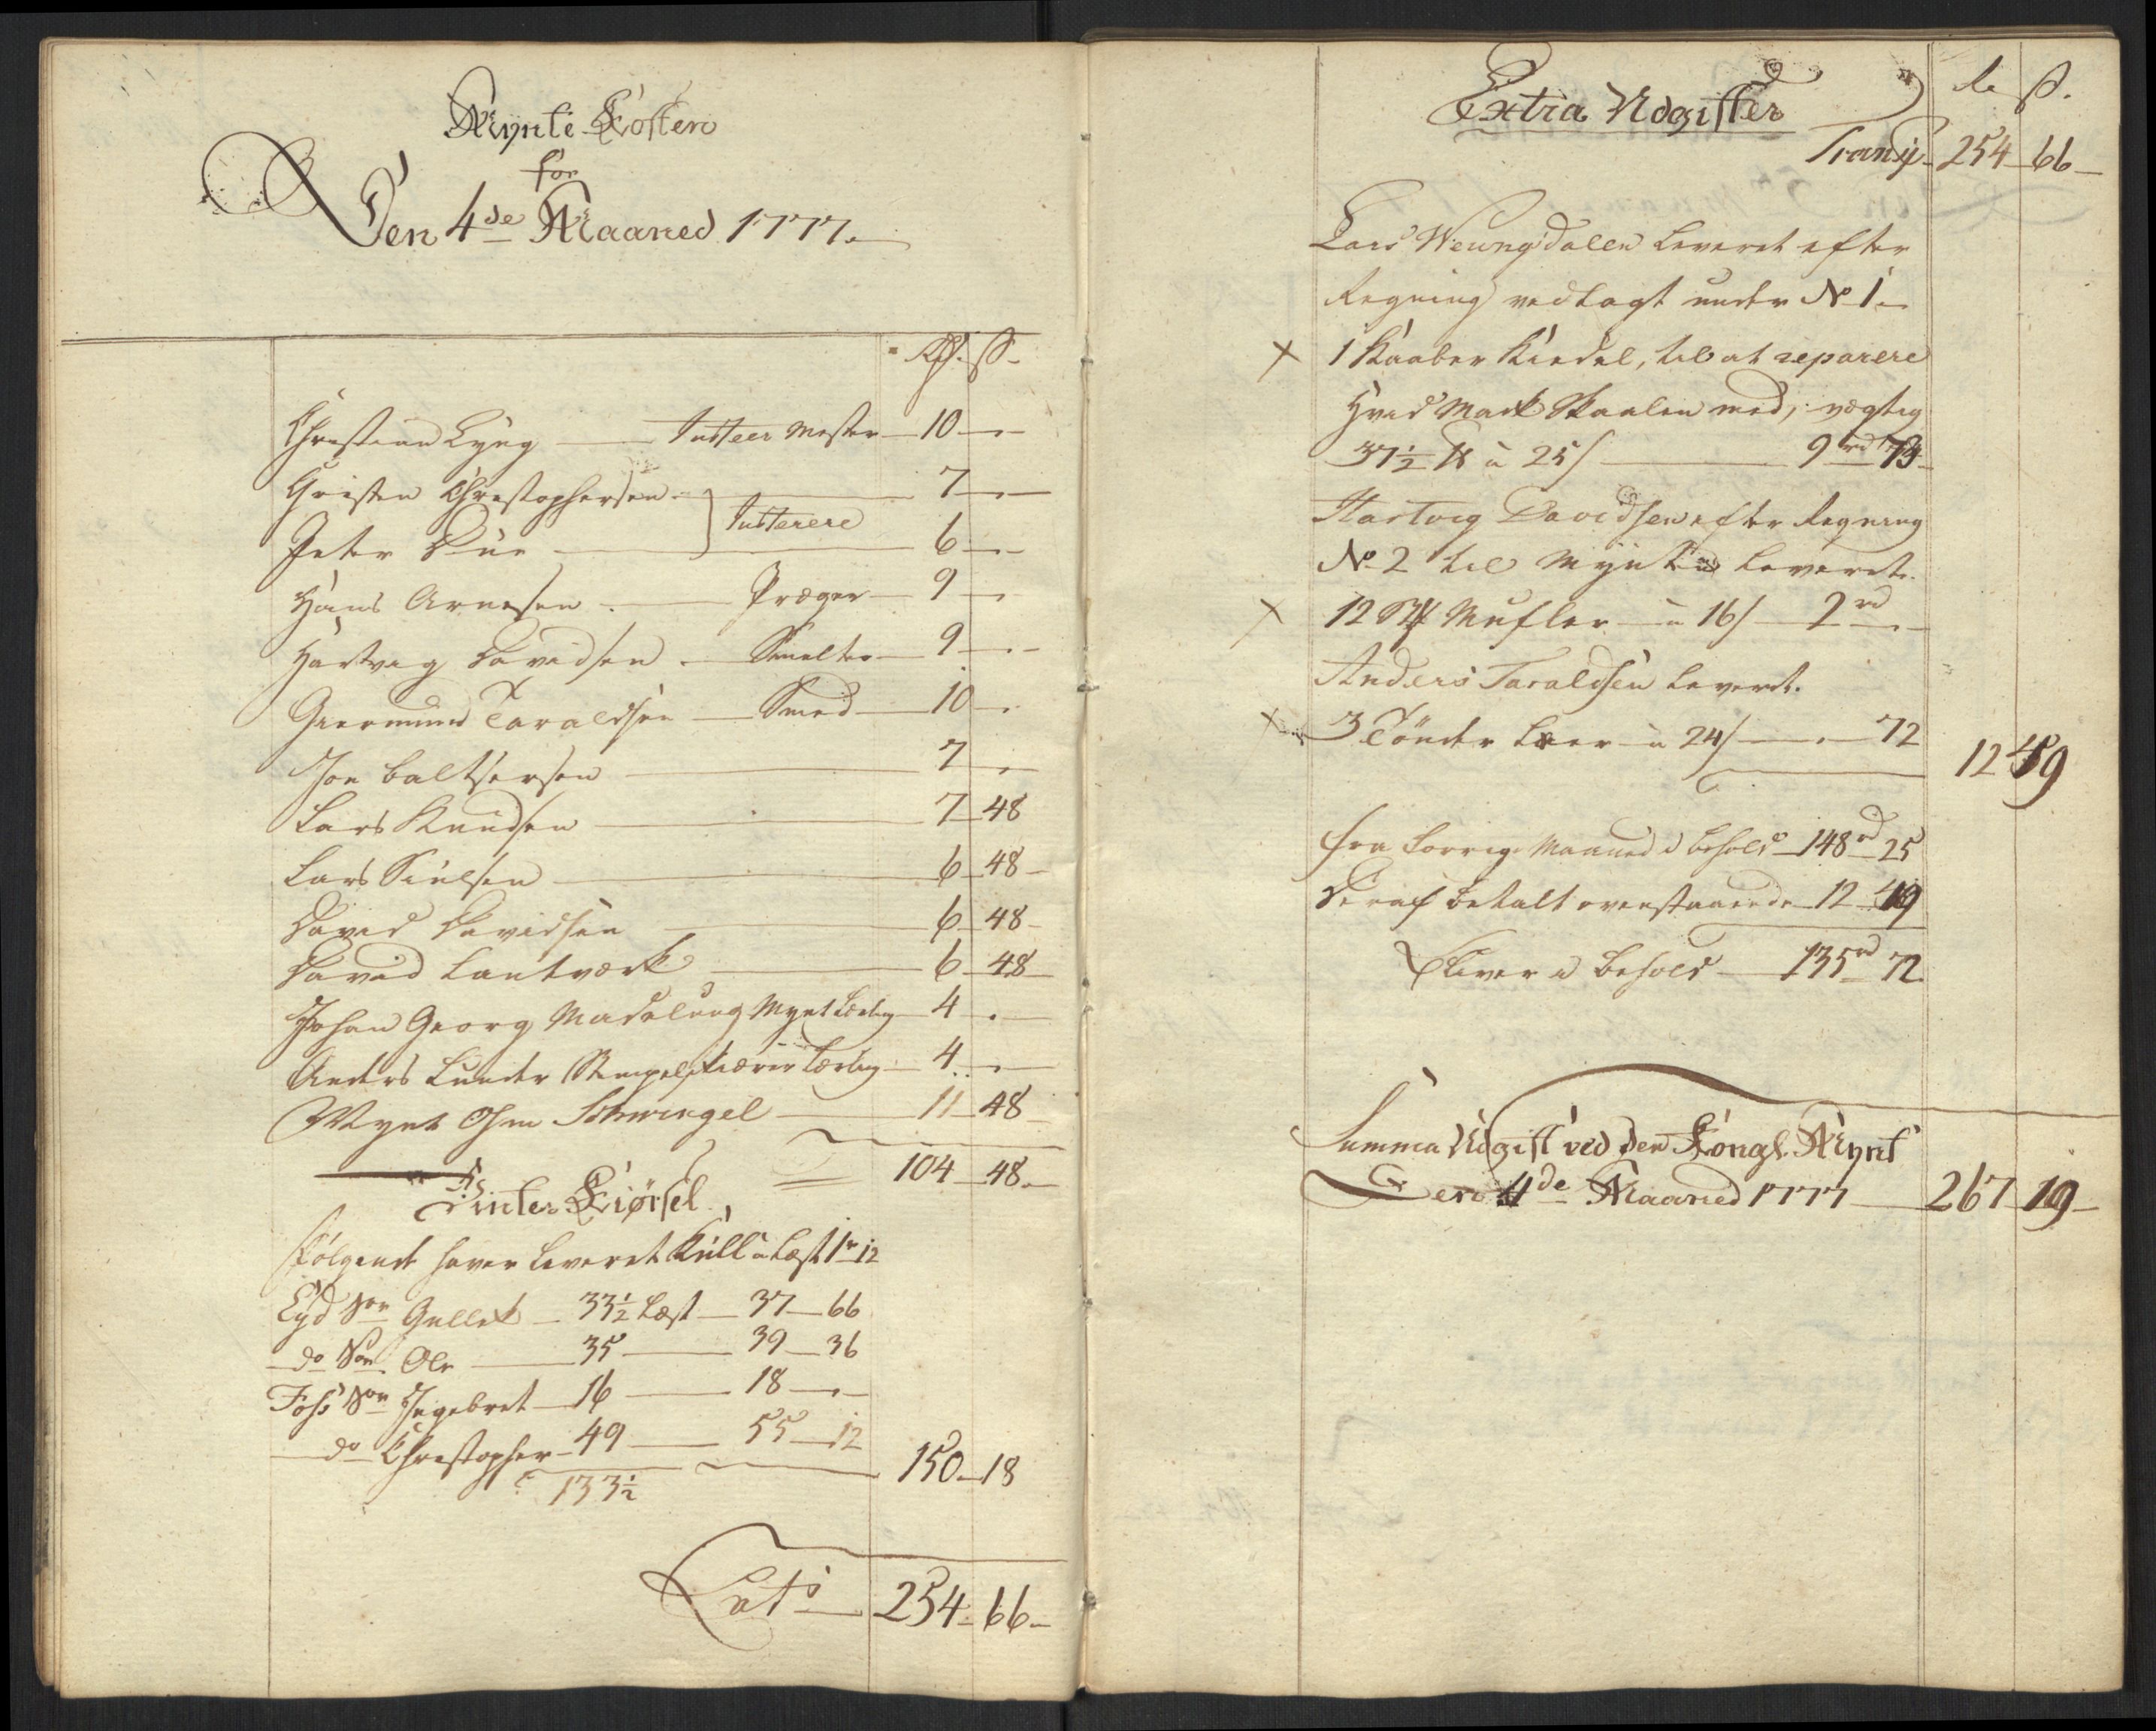 Mynte Kosten
for
Den 4de Maaned 1777.
Rd. ß.
Christian Lyng — Justeer Mester — 10 —
Christen Christophersen — 7 —
Justerere
Peter Due — 6 —
Hans Arnesen — Præger — 9 —
Hartvig Davidsen — Smelter — 9 —
Giermund Taraldsen — Smed — 10 —
Jon Baltzersen — 7 —
Lars Knudsen — 7 — 48
Lars Nielsen — 6 — 48
David Davidsen — 6 — 48
David Lantværk — 6 — 48
Johan Georg Madelung Mynt Lærling — 4 —
Anders Lunder Stempelskærer Lærling — 4 —
Mynt Schwingel — 11 — 48
104 — 48
Vinter Kiørsel
Følgende haver leveret Kull a Læst 1 r 12
Eyd Søn Gullek — 33½ Læst — 37 — 66
do Søn Ole — 35 — 39 — 36
Foss Søn Ingebret — 16 — 18 —
do Christopher — 49 — 55 — 12
150 — 18
133½
Lats — 254 — 66
Extra Udgifter
Rd ß.
Transp. 254 — 66
Lars Weungdalen leveret efter
Regning vedlagt under No 1.
× 1 Kaaber Kiedel, til at reparere
Hvid Mark Skaalen med, vægtig
37½ ℔ a 25 ß — 9 rd 73
Hartvig Davidsen efter Regning
No 2 til Mynten leveret.
× 12 St Mufler a 16 ß — 2 rd —
Anders Taraldsen leveret.
× 3 Tønder Leer a 24 ß — 72
12 49
fra forrige Maaned i behold — 148 rd 25
Deraf betalt ovenstaaende — 12 49
Bliver i behold — 135 rd 72
Summa Udgift ved den Kongl. Mynt
Den 4de Maaned 1777 — 267 19